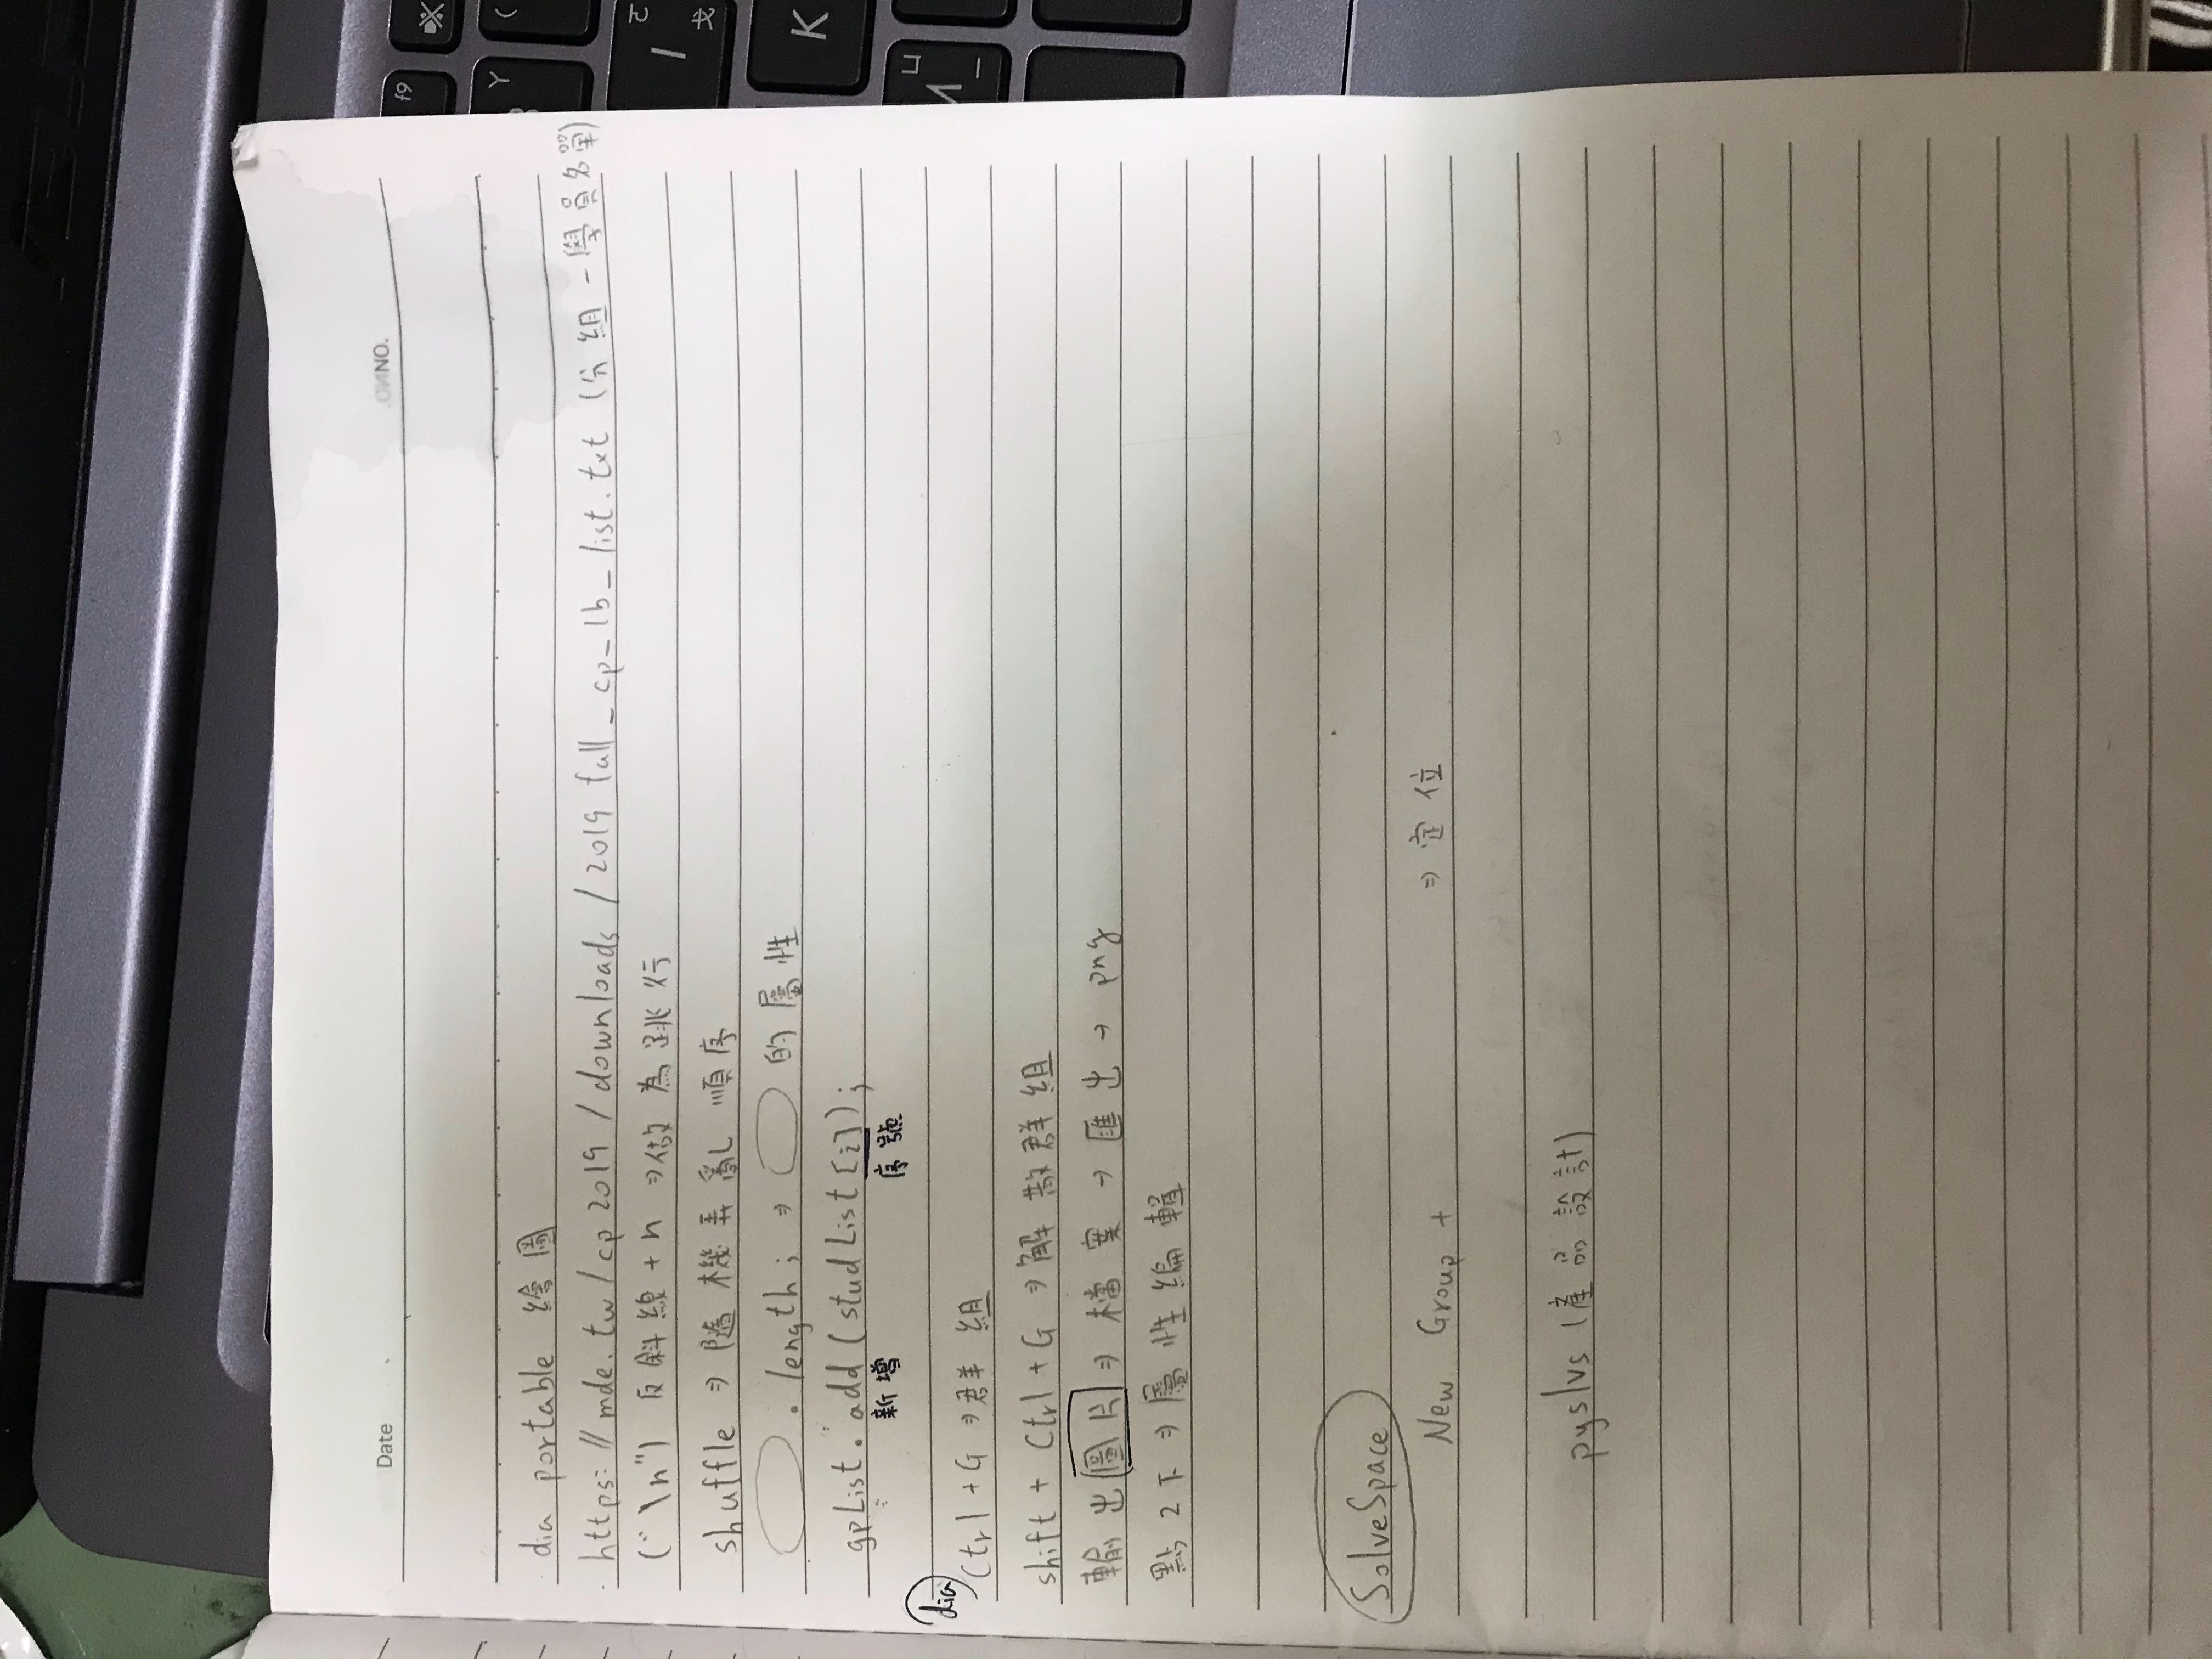 Date
NO.
dia portable 繪圖
https://mde.tw/cp2019/downloads/2019fall_cp_1b_list.txt (分組-學員名單)
("\n") 反斜線+n ⇒做為跳行
shuffle ⇒ 隨機弄亂順序
.length; ⇒ 的屬性
gpList.add(studList[i]);
新增 序號
dia
Ctrl+G ⇒群組
shift + Ctrl+G ⇒解散群組
輸出圖片 ⇒ 檔案 → 匯出 → png
點2下 ⇒ 屬性編輯
SolveSpace
New Group + ⇒ 定位
pyslvs (產品設計)
f9
Y
K